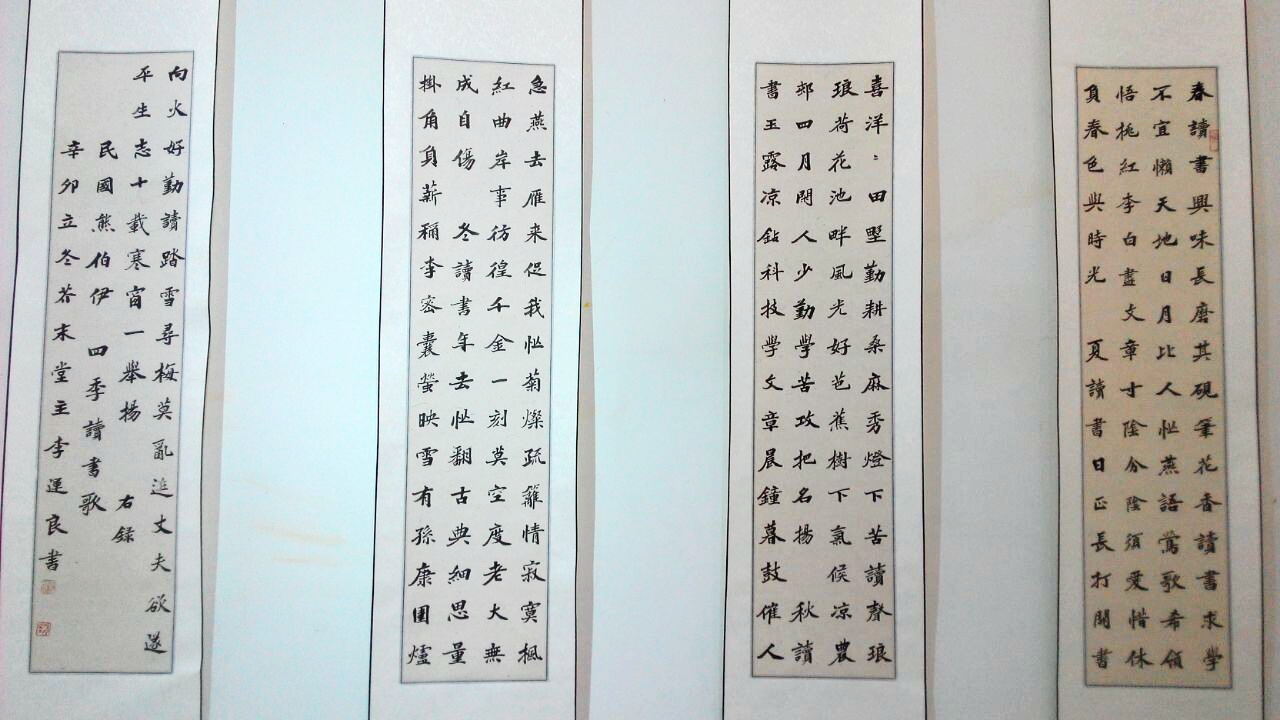 春讀書興味長磨其硯筆花香讀書求學
不宜懶天地日月比人忙燕語鶯歌希領
悟桃紅李白盡文章寸陰分陰須愛惜休
負春色與時光 夏讀書日正長打開書
喜洋〻田墅勤耕桑麻秀燈下苦讀聲琅
琅荷花池畔風光好芭蕉樹下氣候凉農
邨四月閒人少勤學苦攻把名揚 秋讀
書玉露凉鉆科技學文章晨鐘暮鼓催人
急燕去雁来促我忙菊燦疏籬情寂寞楓
紅曲岸事彷徨千金一刻莫空度老大無
成自傷 冬讀書年去忙翻古典細思量
掛角負薪稱李密囊螢映雪有孫康圍爐
向火好勤讀踏雪尋梅莫亂追丈夫欲遂
平生志十載寒窗一舉揚 右録
民國熊伯伊 四季讀書歌
辛卯立冬若末堂主李運良書